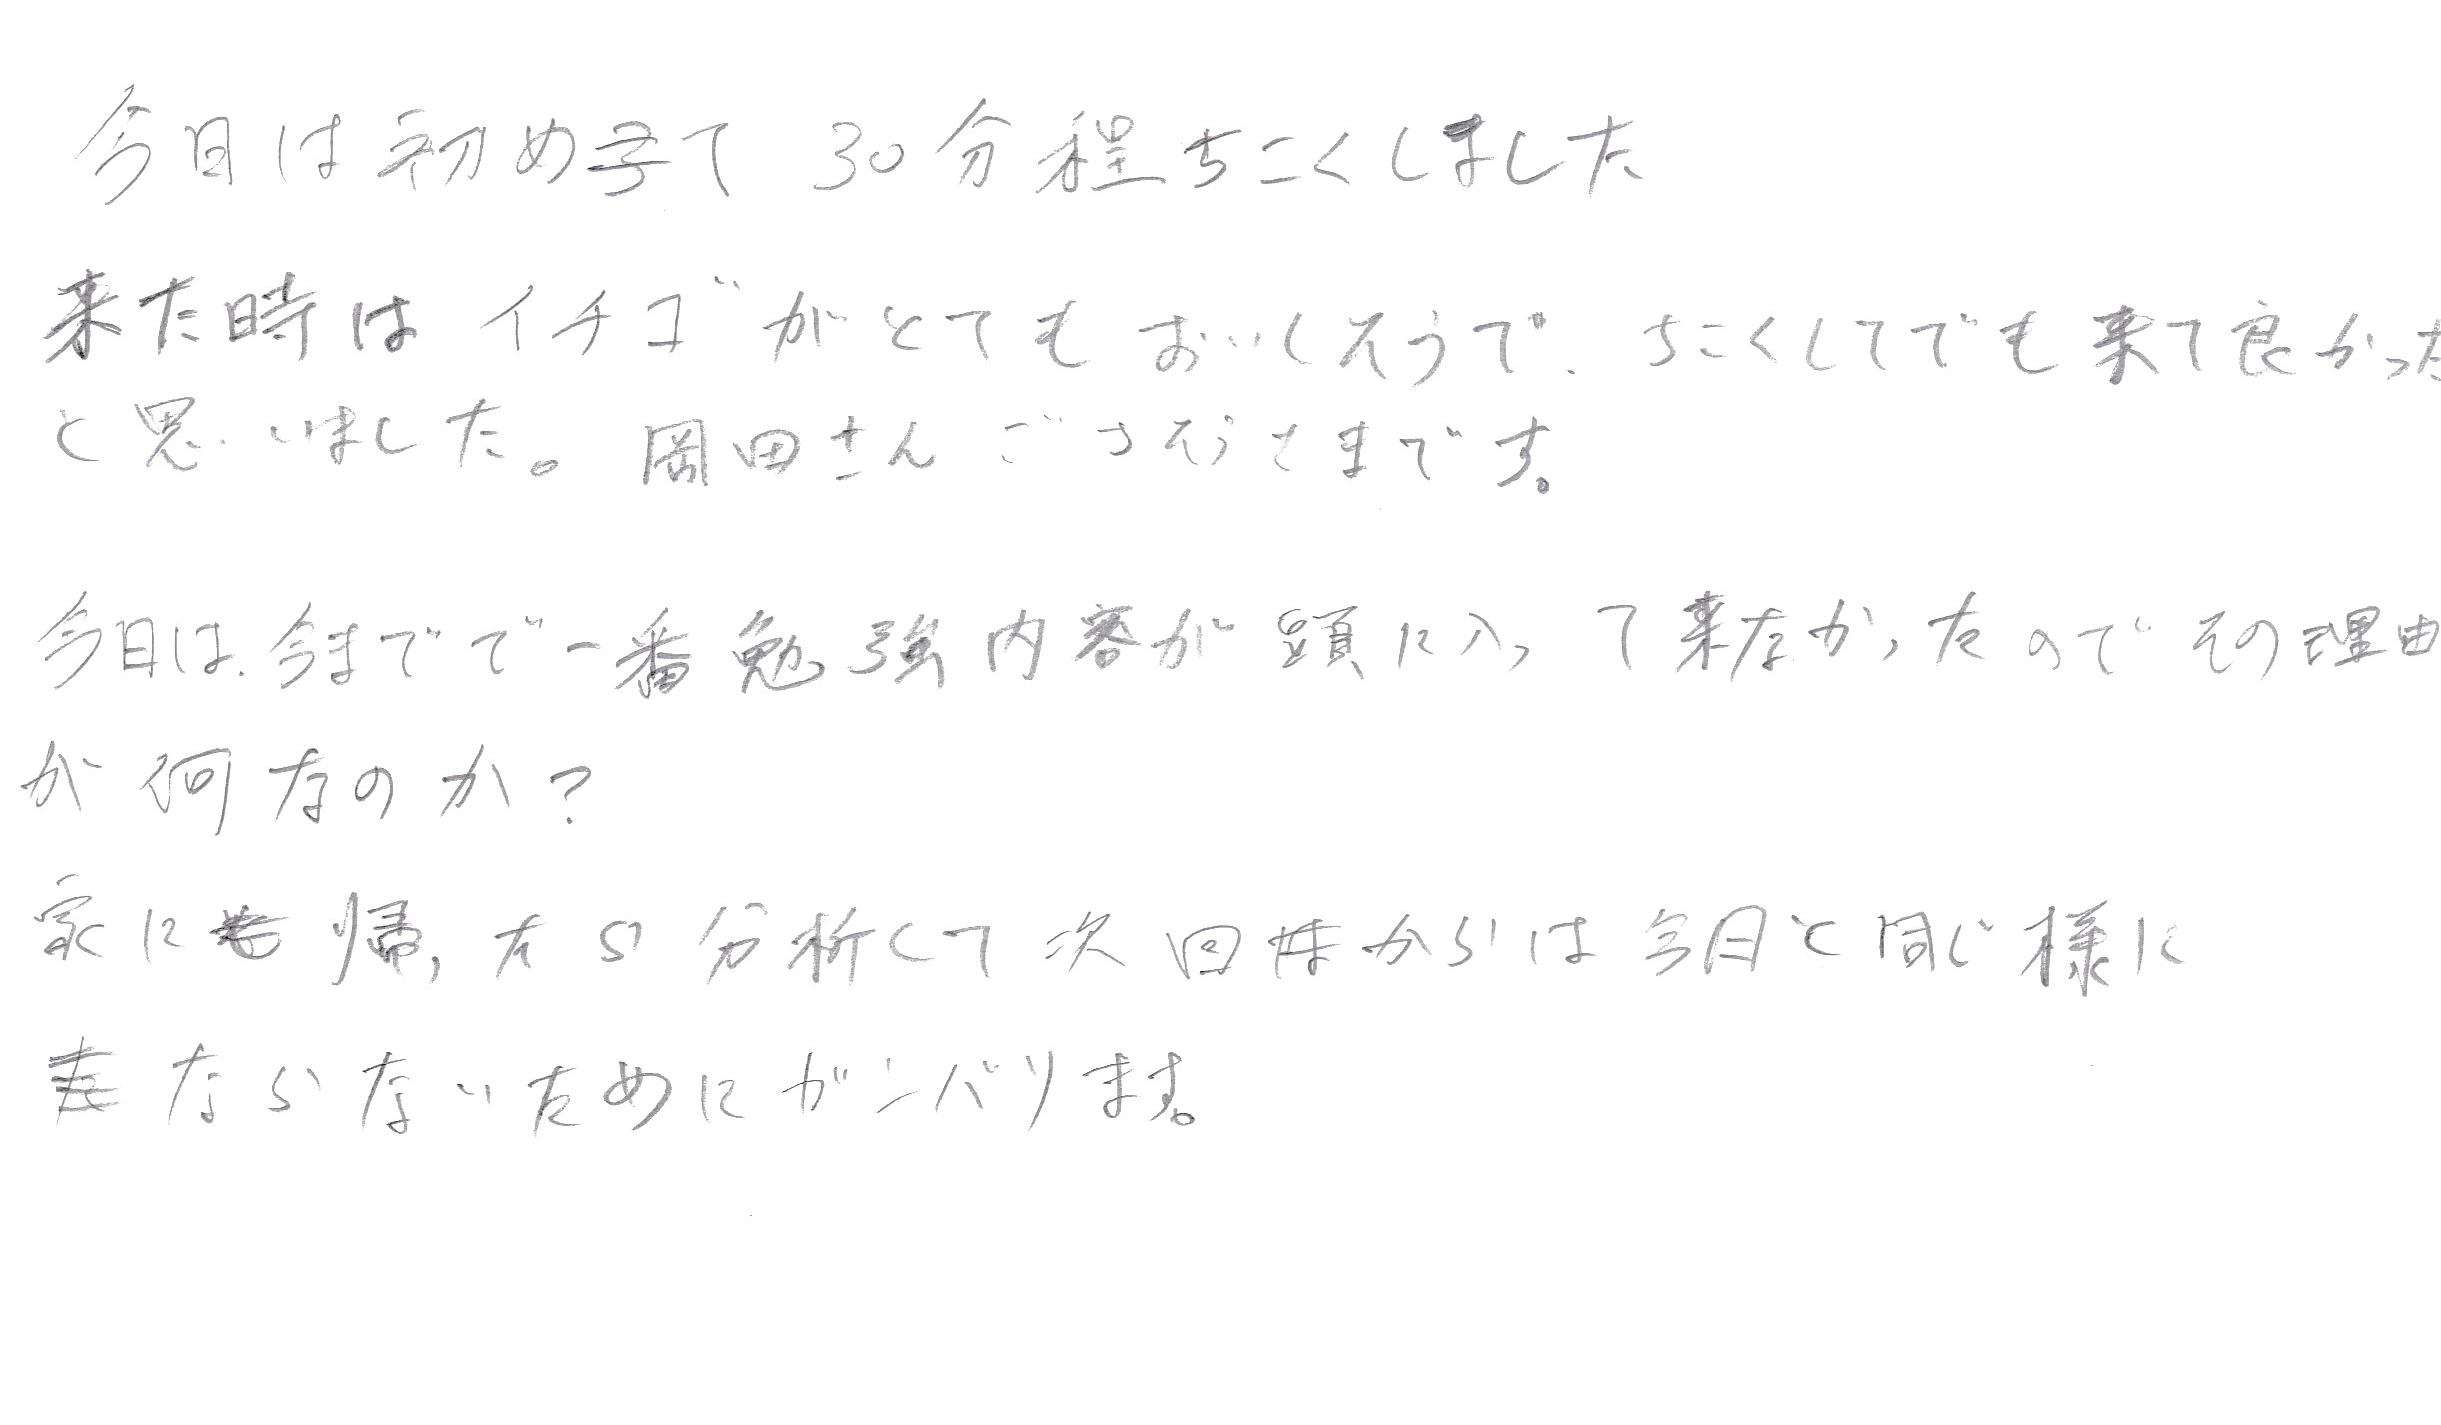 今日は初めて 30分程ちこくしました
来た時は イチゴがとても おいしそうで、ちこくしてでも来て良かった
と思いました。 岡田さん ごちそうさまです。
今日は、今までで一番勉強内容が頭に入って来なかったので その理由
が何なのか?
家に帰ったら分析して次回からは今日と同じ様に
ならないためにガンバります。